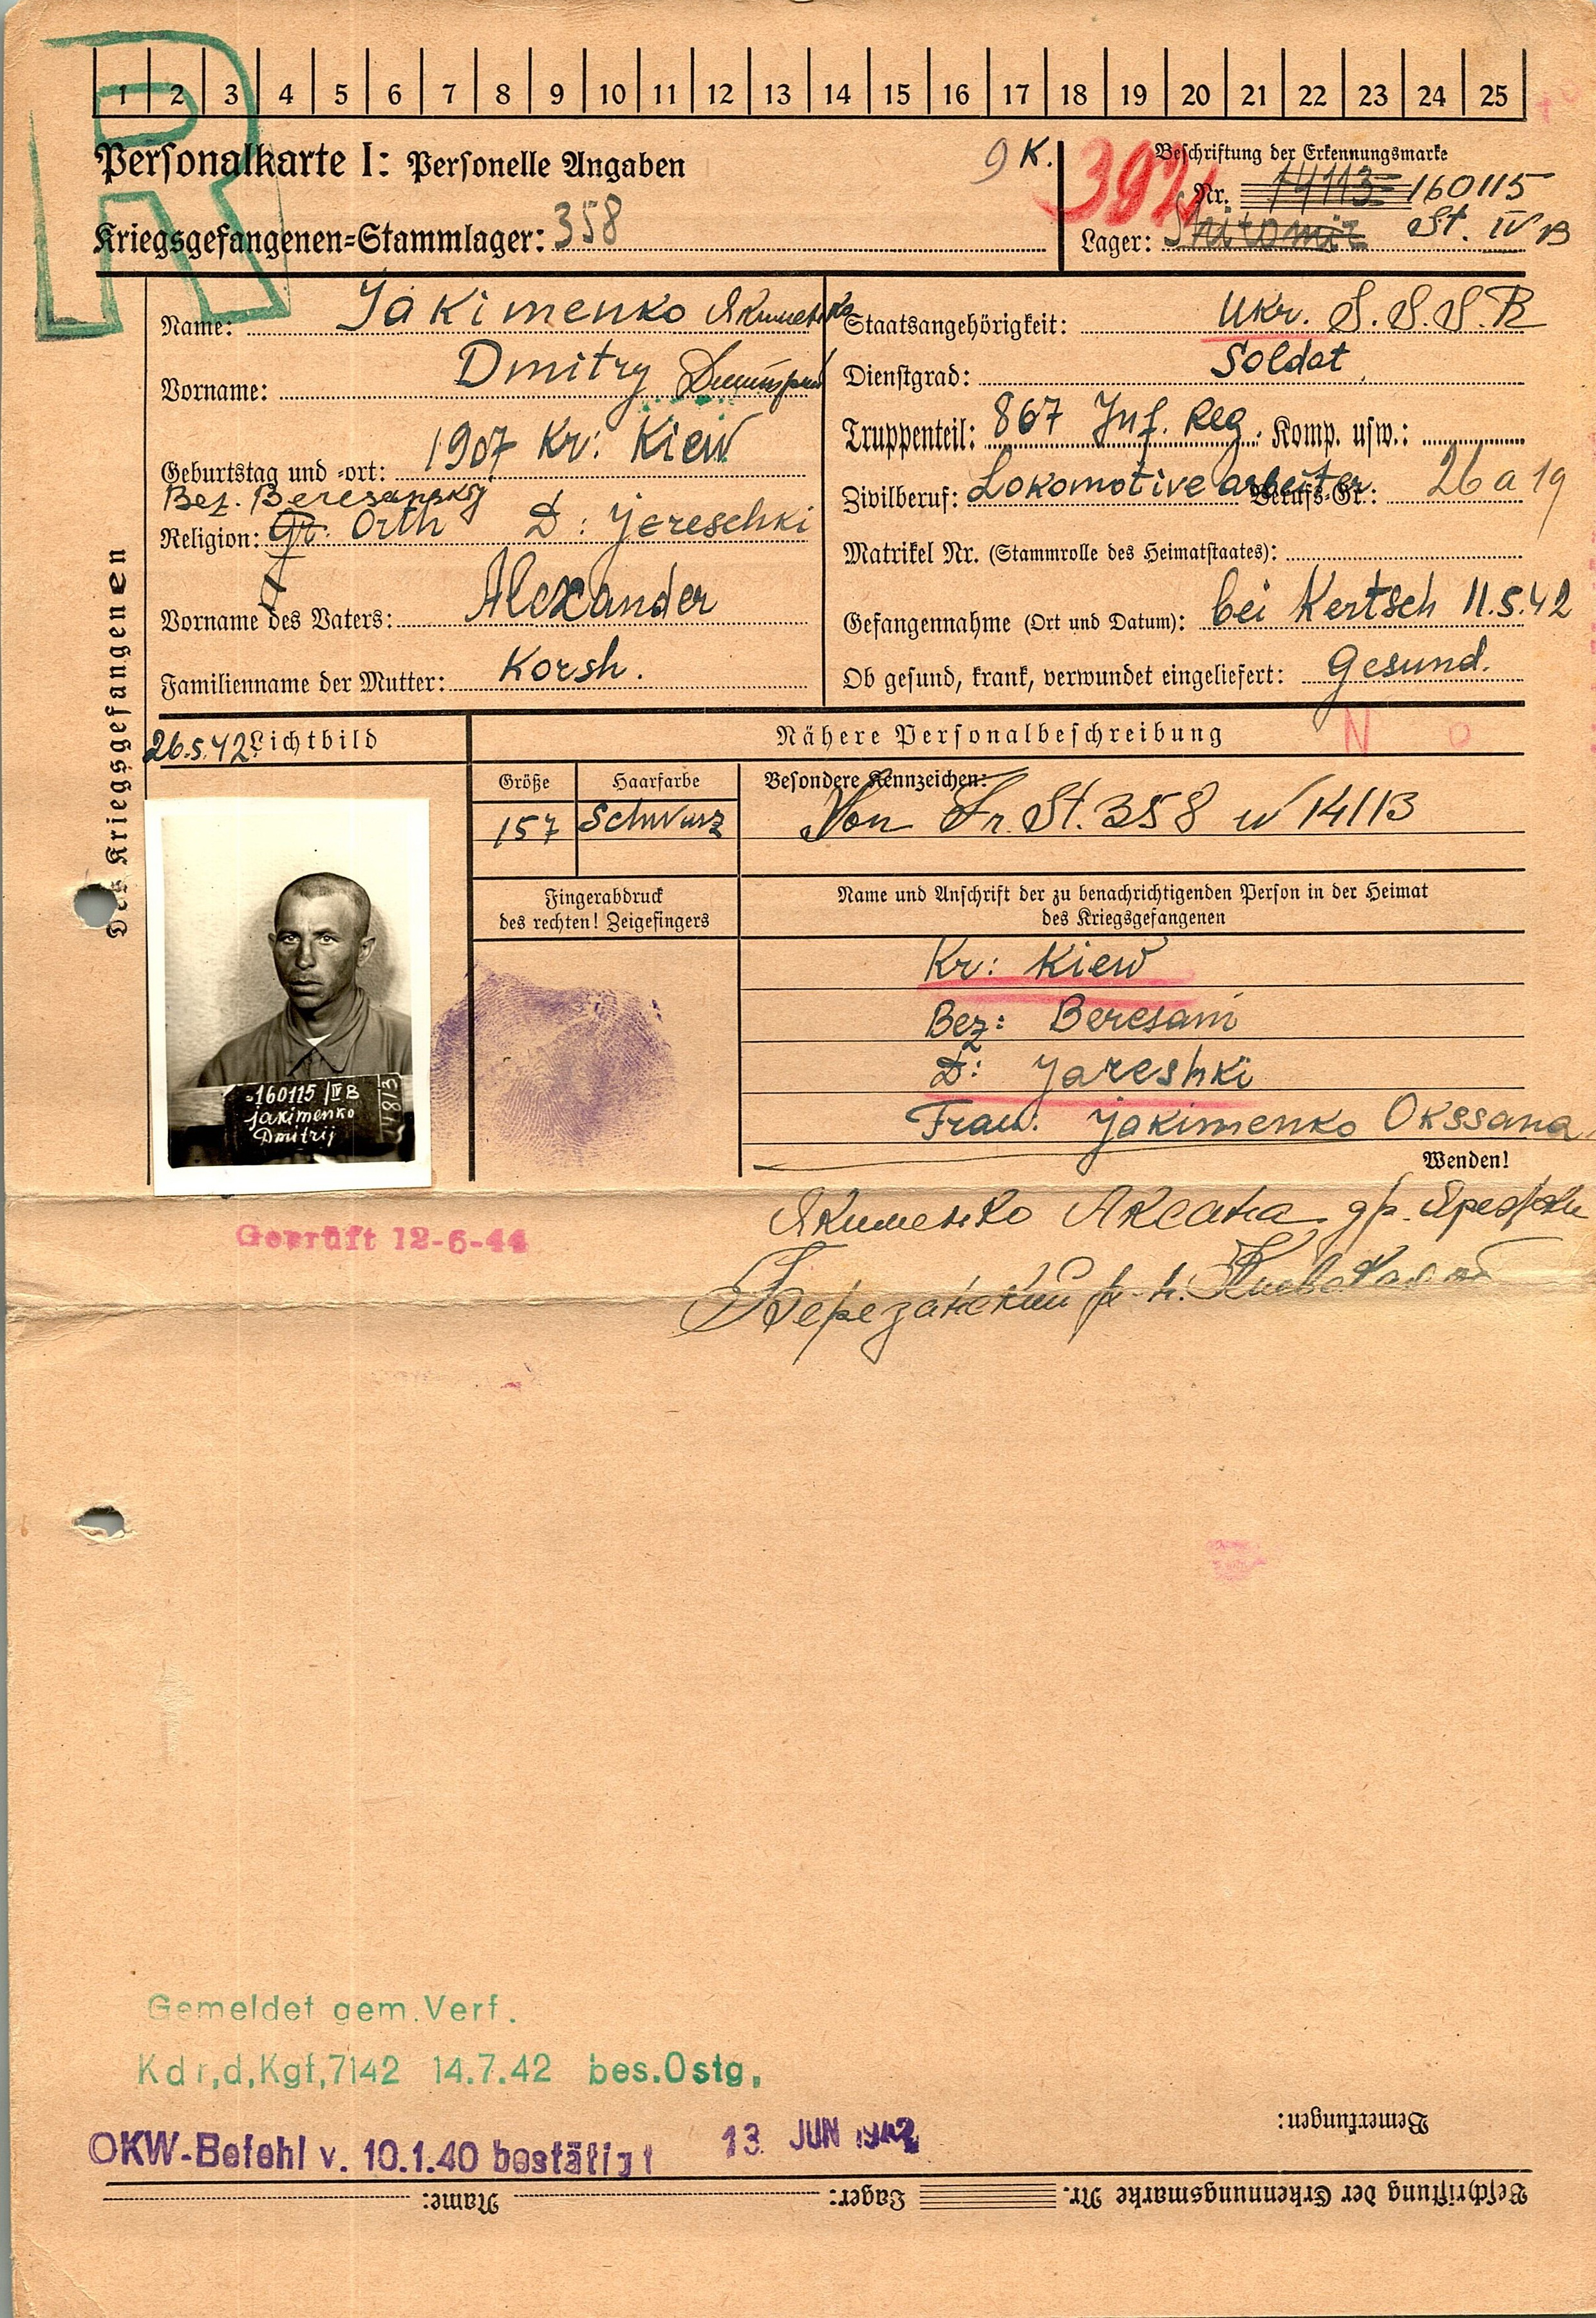 R
1 2 3 4 5 6 7 8 9 10 11 12 13 14 15 16 17 18 19 20 21 22 23 24 25
Personalkarte I: Personelle Angaben
9 K.
392
Beschriftung der Erkennungsmarke
Nr. 160115
Kriegsgefangenen-Stammlager: 358
Lager: Shitomir St. IV B
Des Kriegsgefangenen
Name: Jakimenko Якименко
Vorname: Dmitry Дмитрий
Geburtstag und -ort: 1907 Kr: Kiew
Bez. Beresansky
Religion: Gr. Orth D: Jereschki
Vorname des Vaters: Alexander
Familienname der Mutter: Korsh.
Staatsangehörigkeit: Ukr. S.S.S.R
Dienstgrad: Soldat
Truppenteil: 867 Inf. Reg. Komp. usw.:
Zivilberuf: Lokomotive arbeiter Berufs-Gr.: 26 a 19
Matrikel Nr. (Stammrolle des Heimatstaates):
Gefangennahme (Ort und Datum): bei Kertsch 11.5.42
Ob gesund, krank, verwundet eingeliefert: Gesund.
26.5.42 Lichtbild
Nähere Personalbeschreibung
N o
Größe
Haarfarbe
Besondere Kennzeichen:
157
Schwarz
Von Fr. St. 358 N 14113
Fingerabdruck
des rechten! Zeigefingers
Name und Anschrift der zu benachrichtigenden Person in der Heimat
des Kriegsgefangenen
Kr: Kiew
Bez: Beresani
D: Jareshki
Frau: Jakimenko Okssana
160115/IV B
Jakimenko
Dmitrij
Wenden!
Якименко Аксана др.
Березанский р-н. Киевская
Geprüft 12-6-44
Gemeldet gem. Verf.
Kdr,d,Kgf,7142 14.7.42 bes.Ostg,
OKW-Befehl v. 10.1.40 bestätigt 13. JUN 1942
Bemerkungen:
Beschriftung der Erkennungsmarke Nr. Lager: Name: